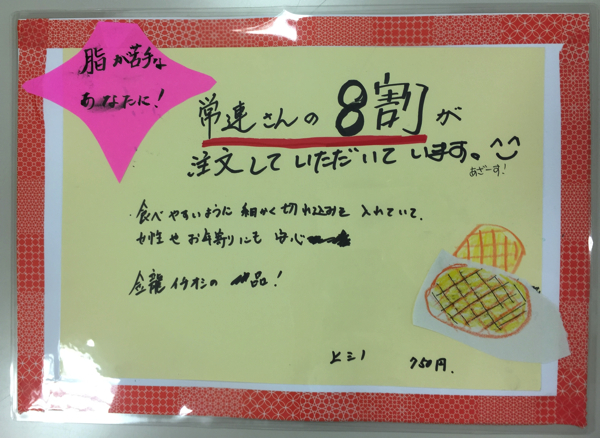 脂が苦手な
あなたに!
常連さんの8割が
注文していただいています。^^
あざーす!
・食べやすいように細かく切れ込みを入れていて、
女性やお年寄りにも安心
金龍イチオシの一品!
ヒミノ 750円.